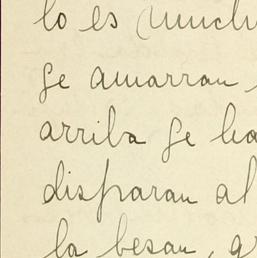 lo es (much
ge amarran
arriba ge ha
disparan al
la besan, q